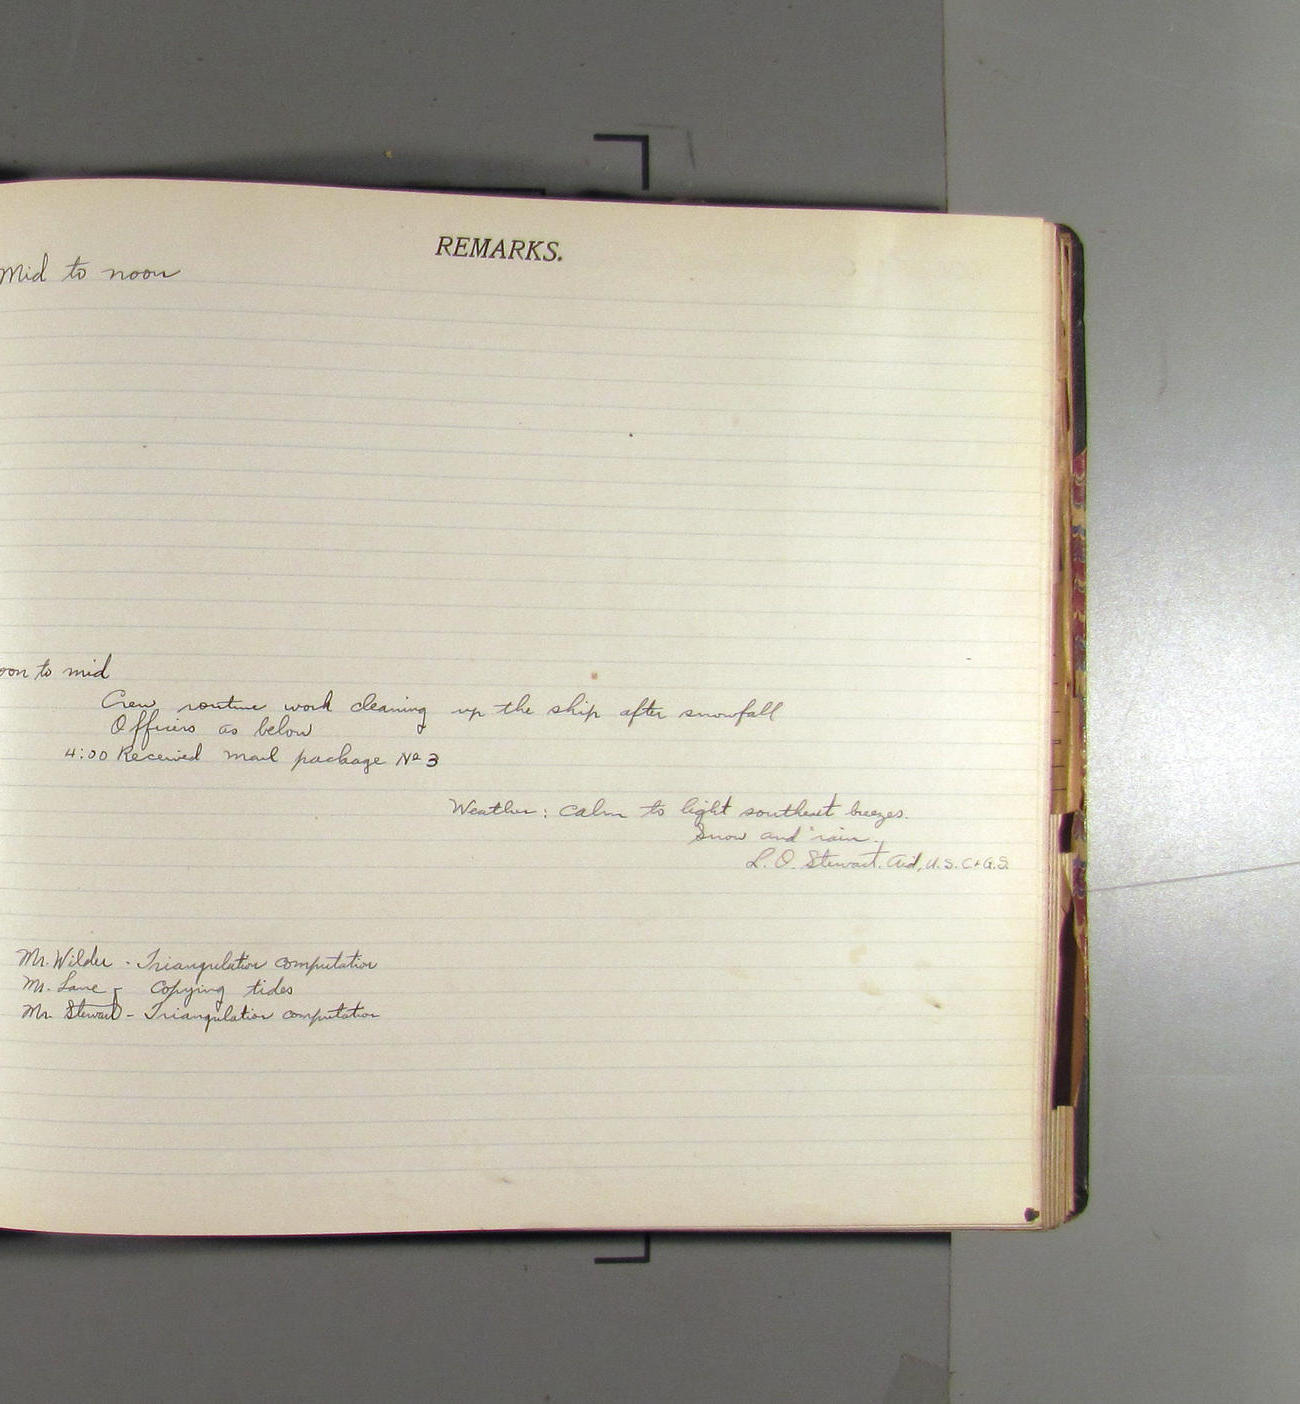 REMARKS.
Mid to noon
oon to mid
Crew routine work cleaning up the ship after snowfall
Officers as below
4:00 Received mail package No 3
Weather: Calm to light southeast breezes.
Snow and rain.
L. O. Stewart. Aid, U.S.C.+G.S.
Mr. Wilder - Triangulation computation
Mr. Lane - Copying tides
Mr. Stewart - Triangulation computation